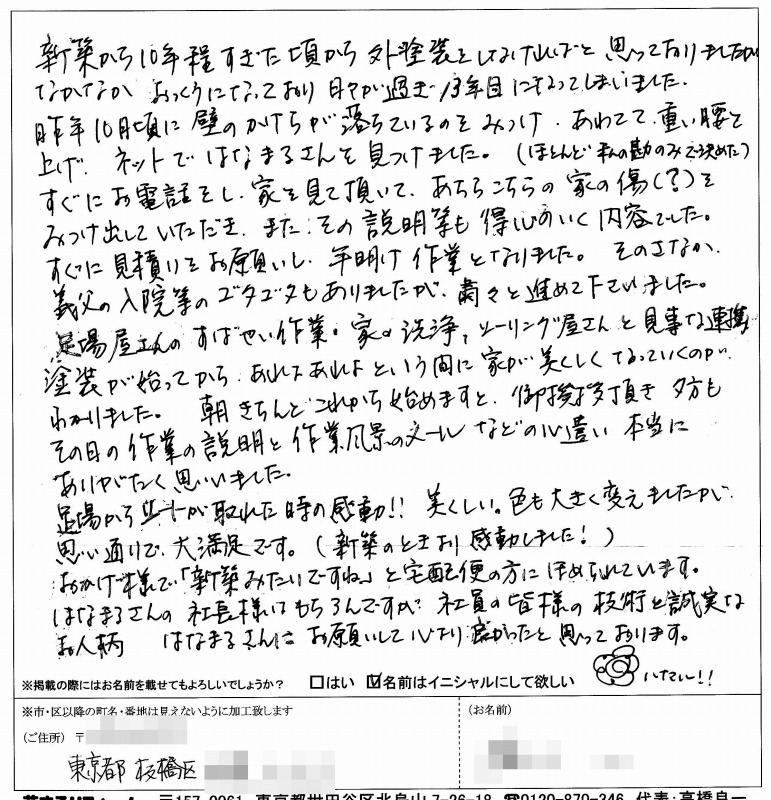 新築から10年程すぎた頃から外塗装をしなければと思っておりましたが
なかなかおっくうになっており日々が過ぎ13年目になってしまいました。
昨年10月頃に壁のかけらが落ちているのをみつけ、あわてて重い腰を
上げ、ネットではなまるさんを見つけました。(ほとんど私の勘のみで決めた)
すぐにお電話をし、家を見て頂いて、あちらこちらの家の傷(?)を
みつけ出していただき、また、その説明等も得心のいく内容でした。
すぐに見積りをお願いし、年明け作業となりました。そのさなか、
義父の入院等のゴタゴタもありましたが、粛々と進めて下さいました。
足場屋さんのすばやい作業。家の洗浄、シーリング屋さんと見事な連携
塗装が始ってから、あれよあれよという間に家が美くしくなっていくのが
わかりました。朝きちんとこれから始めますと、御挨拶頂き夕方も
その日の作業の説明と作業風景のメールなどの心遣い本当に
ありがたく思いました。
足場からシートが取れた時の感動!!美くしい。色も大きく変えましたが
思い通りで、大満足です。(新築のときより感動しました!)
おかげ様で「新築みたいですね」と宅配便の方にほめられています。
はなまるさんの社長様はもちろんですが、社員の皆様の技術と誠実な
お人柄 はなまるさんにお願いして心より良かったと思っております。
ハナマル!!
※掲載の際にはお名前を載せてもよろしいでしょうか? □はい ☑名前はイニシャルにして欲しい
※市・区以降の町名・番地は見えないように加工致します
(お名前)
(ご住所) 〒
東京都 板橋区
〒157-0061 東京都世田谷区北烏山7-26-18 ☎0120-870-346 代表:高橋良一